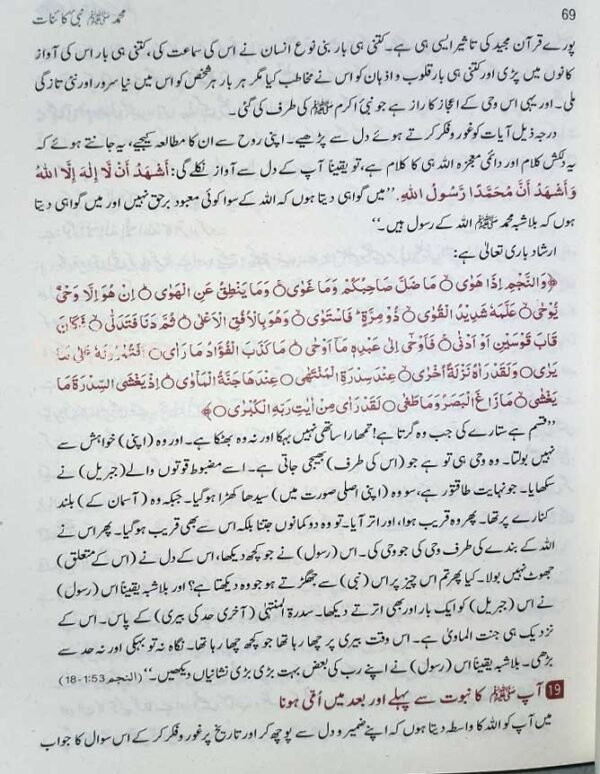 69
محمد ﷺ نبی کائنات
پورے قرآن مجید کی تاثیر ایسی ہی ہے۔ کتنی ہی بار بنی نوع انسان نے اس کی سماعت کی، کتنی ہی بار اس کی آواز
کانوں میں پڑی اور کتنی ہی بار قلوب و اذہان کو اس نے مخاطب کیا مگر ہر بار ہر شخص کو اس میں نیا سرور اور نئی تازگی
ملی۔ اور یہی اس وحی کے اعجاز کا راز ہے جو نبیٔ اکرم ﷺ کی طرف کی گئی۔
درجہ ذیل آیات کو غور و فکر کرتے ہوئے دل سے پڑھیے۔ اپنی روح سے ان کا مطالعہ کیجیے، یہ جانتے ہوئے کہ
یہ دلکش کلام اور دائمی معجزہ اللہ ہی کا کلام ہے، تو یقیناً آپ کے دل سے آواز نکلے گی: أَشْهَدُ أَنْ لَّا إِلٰهَ إِلَّا اللهُ
وَأَشْهَدُ أَنَّ مُحَمَّدًا رَّسُولُ اللهِ. ’’میں گواہی دیتا ہوں کہ اللہ کے سوا کوئی معبود برحق نہیں اور میں گواہی دیتا
ہوں کہ بلاشبہ محمد ﷺ اللہ کے رسول ہیں۔‘‘
ارشاد باری تعالیٰ ہے:
﴿وَالنَّجْمِ اِذَا هَوٰى ○ مَا ضَلَّ صَاحِبُكُمْ وَمَا غَوٰى ○ وَمَا يَنْطِقُ عَنِ الْهَوٰى ○ اِنْ هُوَ اِلَّا وَحْيٌ
يُّوْحٰى ○ عَلَّمَهٗ شَدِيْدُ الْقُوٰى ○ ذُوْ مِرَّةٍ ۭ فَاسْتَوٰى ○ وَهُوَ بِالْاُفُقِ الْاَعْلٰى ○ ثُمَّ دَنَا فَتَدَلّٰى ○ فَكَانَ
قَابَ قَوْسَيْنِ اَوْ اَدْنٰى ○ فَاَوْحٰى اِلٰى عَبْدِهٖ مَآ اَوْحٰى ○ مَا كَذَبَ الْفُؤَادُ مَا رَاٰى ○ اَفَتُمٰرُوْنَهٗ عَلٰى مَا
يَرٰى ○ وَلَقَدْ رَاٰهُ نَزْلَةً اُخْرٰى ○ عِنْدَ سِدْرَةِ الْمُنْتَهٰى ○ عِنْدَهَا جَنَّةُ الْمَاْوٰى ○ اِذْ يَغْشَى السِّدْرَةَ مَا
يَغْشٰى ○ مَا زَاغَ الْبَصَرُ وَمَا طَغٰى ○ لَقَدْ رَاٰى مِنْ اٰيٰتِ رَبِّهِ الْكُبْرٰى ○﴾
’’قسم ہے ستارے کی جب وہ گرتا ہے! تمھارا ساتھی نہیں بہکا اور نہ وہ بھٹکا ہے۔ اور وہ (اپنی) خواہش سے
نہیں بولتا۔ وہ وحی ہی تو ہے جو (اس کی طرف) بھیجی جاتی ہے۔ اسے مضبوط قوتوں والے (جبریل) نے
سکھایا۔ جو نہایت طاقتور ہے، سو وہ (اپنی اصلی صورت میں) سیدھا کھڑا ہوگیا۔ جبکہ وہ (آسمان کے) بلند
کنارے پر تھا۔ پھر وہ قریب ہوا، اور اتر آیا۔ تو وہ دو کمانوں جتنا بلکہ اس سے بھی قریب ہوگیا۔ پھر اس نے
اللہ کے بندے کی طرف وحی کی جو وحی کی۔ اس (رسول) نے جو کچھ دیکھا، اس کے دل نے (اس کے متعلق)
جھوٹ نہیں بولا۔ کیا پھر تم اس چیز پر اس (نبی) سے جھگڑتے ہو جو وہ دیکھتا ہے؟ اور بلاشبہ یقیناً اس (رسول)
نے اس (جبریل) کو ایک بار اور بھی اترتے دیکھا۔ سدرۃ المنتہیٰ (آخری حد کی بیری) کے پاس۔ اس کے
نزدیک ہی جنت الماویٰ ہے۔ اس وقت بیری پر چھا رہا تھا جو کچھ چھا رہا تھا۔ نگاہ نہ تو بہکی اور نہ حد سے
بڑھی۔ بلاشبہ یقیناً اس (رسول) نے اپنے رب کی بعض بہت بڑی بڑی نشانیاں دیکھیں۔‘‘ (النجم 53:1-18)
19 آپ ﷺ کا نبوت سے پہلے اور بعد میں اُمّی ہونا
میں آپ کو اللہ کا واسطہ دیتا ہوں کہ اپنے ضمیر و دل سے پوچھ کر اور تاریخ پر غور و فکر کر کے اس سوال کا جواب